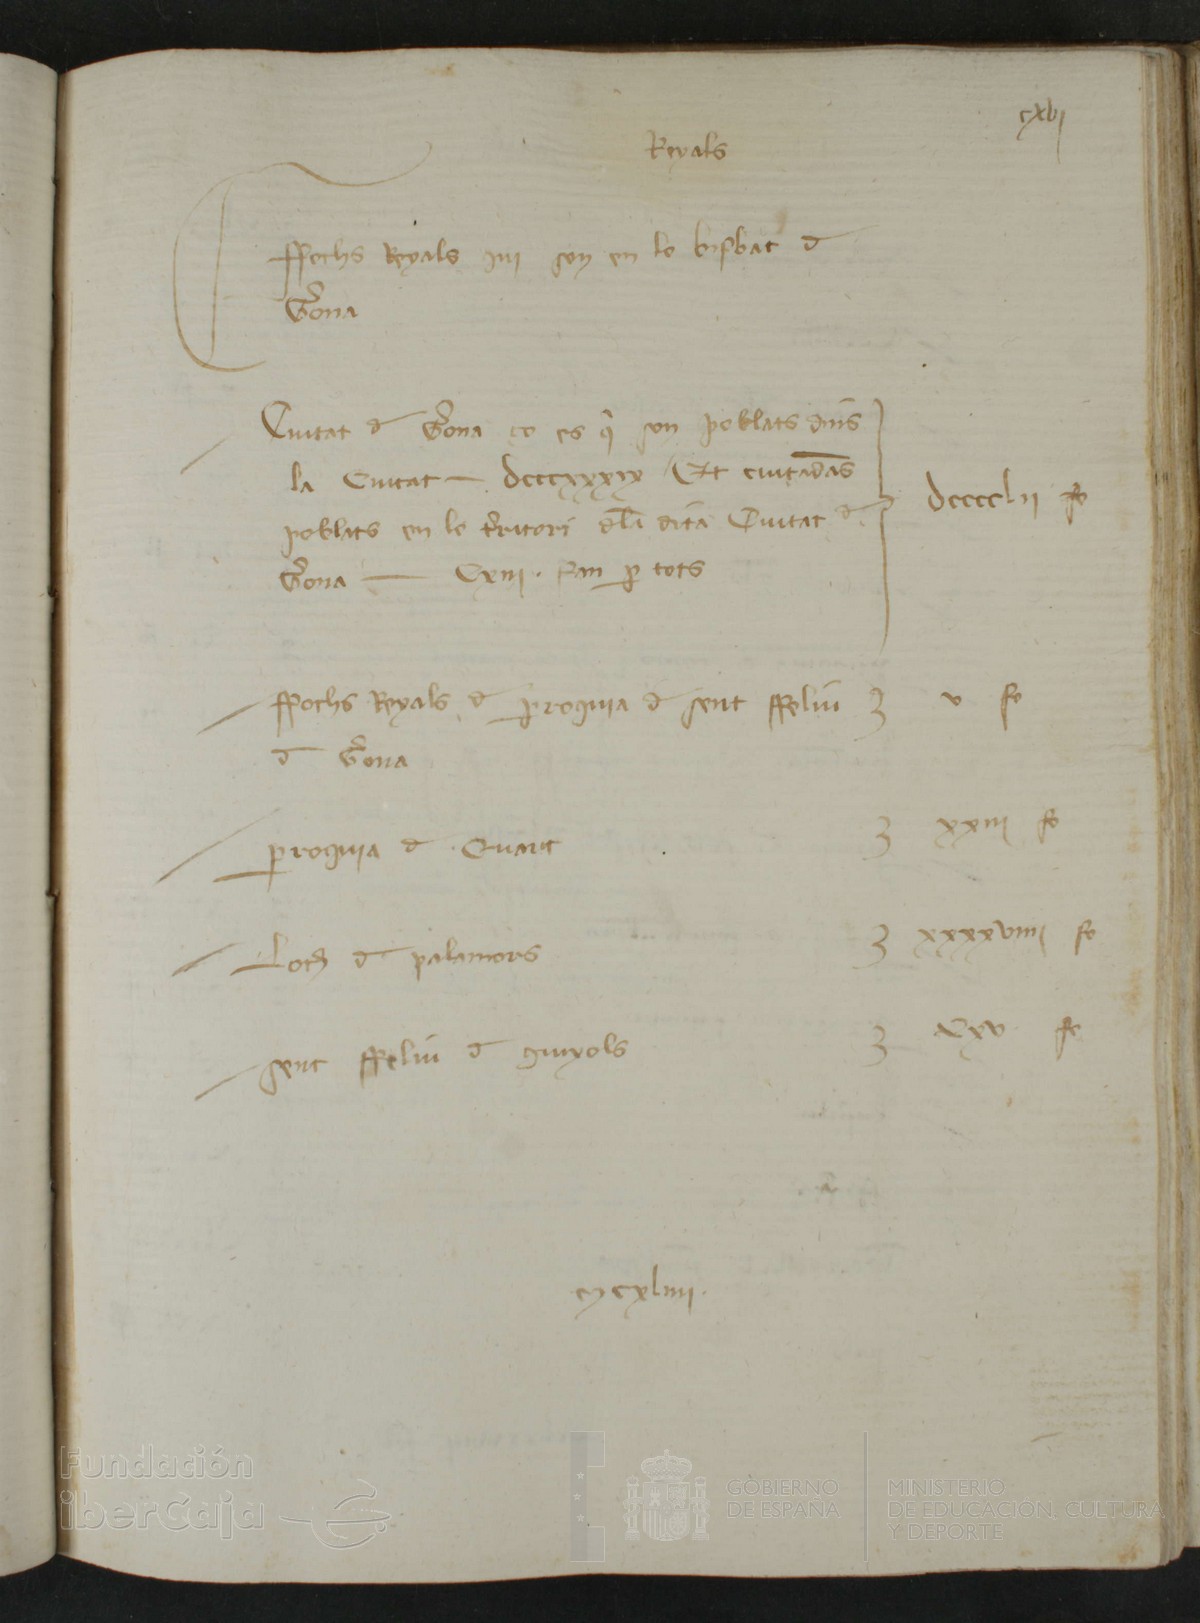 cxvj
Reyals
ffochs Reyals qui son en lo bisbat d
Gĩona
Ciutat d Gĩona ço es q̃ son poblats dins
la Ciutat — dcccxxxix Et ciutadãs
poblats en lo t̃ritori dla dita Ciutat d
Gĩona — Cxiij . San p tots
dcccclij fo
ffochs Reyals d p̱roquia d sent ffeliu
v fo
d Gĩona
p̱roquia d Quart
xxiij fo
Loch d palamors
xxxxviiij fo
sent ffeliu d guixols
Cxv fo
mcxliiij .
Fundación
iberCaja
GOBIERNO
DE ESPAÑA
MINISTERIO
DE EDUCACIÓN, CULTURA
Y DEPORTE